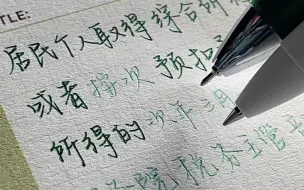 TLE:
居民个人取得综合所
或者按次预扣
所得的次年三月
院税务主管